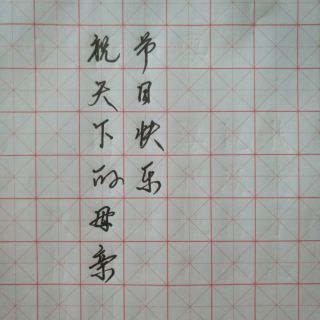 祝天下的母亲
节日快乐